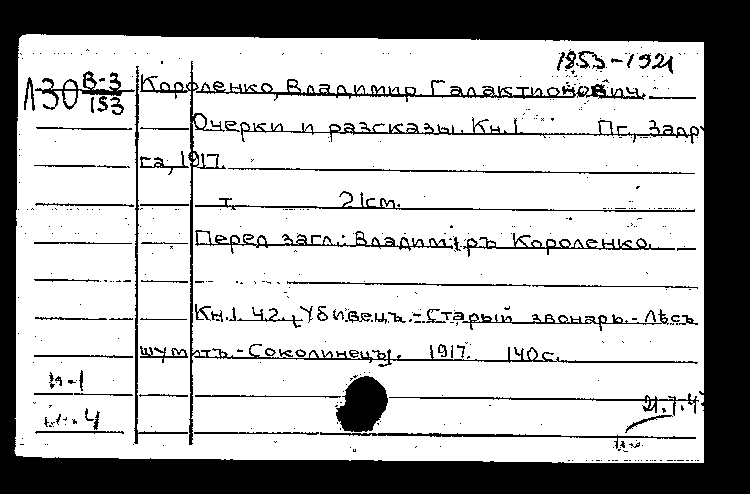 1853-1921
Л30 В-3/153 Короленко, Владимир Галактионович.
Очерки и разсказы. Кн.1. Пг., Задру
га, 1917.
т. 21см.
Перед загл.: Владимiръ Короленко.
Кн.1. Ч2. [Убивецъ.-Старый звонарь.-Лѣсъ
шумитъ.-Соколинецъ]. 1917. 140с.
21.7.47